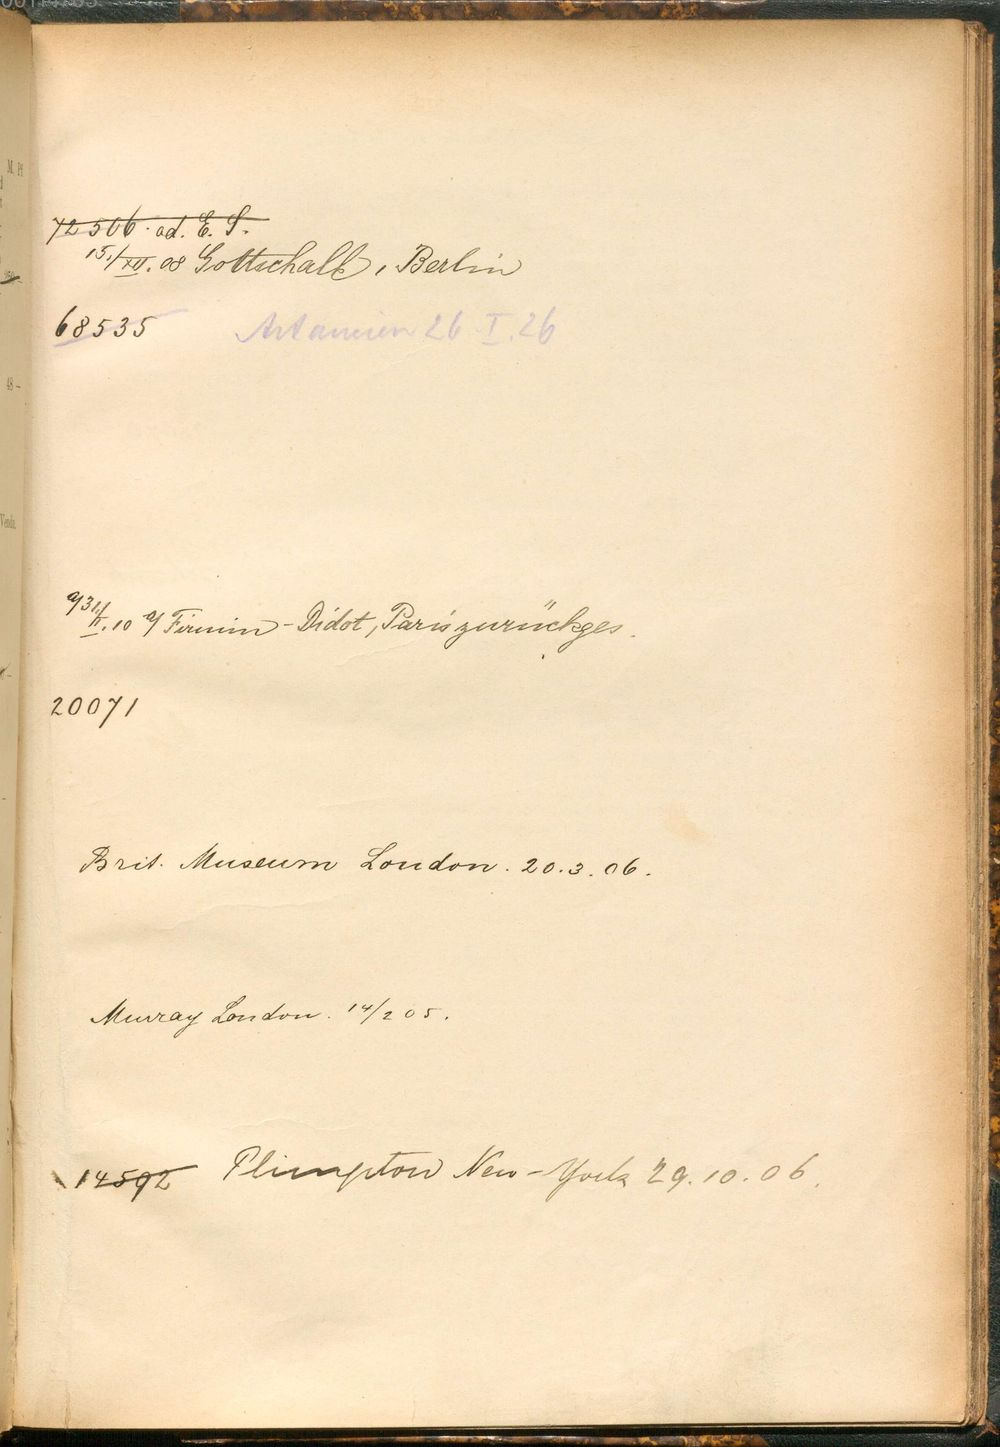 72506. ad. E. S.
15./XII. 08 Gottschalk, Berlin
68535 26 I. 26
10 Firmin-Didot, Paris zurückges.
20071
Brit. Museum London. 20.3.06.
Murray London. 14/2 05.
14592 Plimpton New-York 29.10.06.
M. Pf
48 –